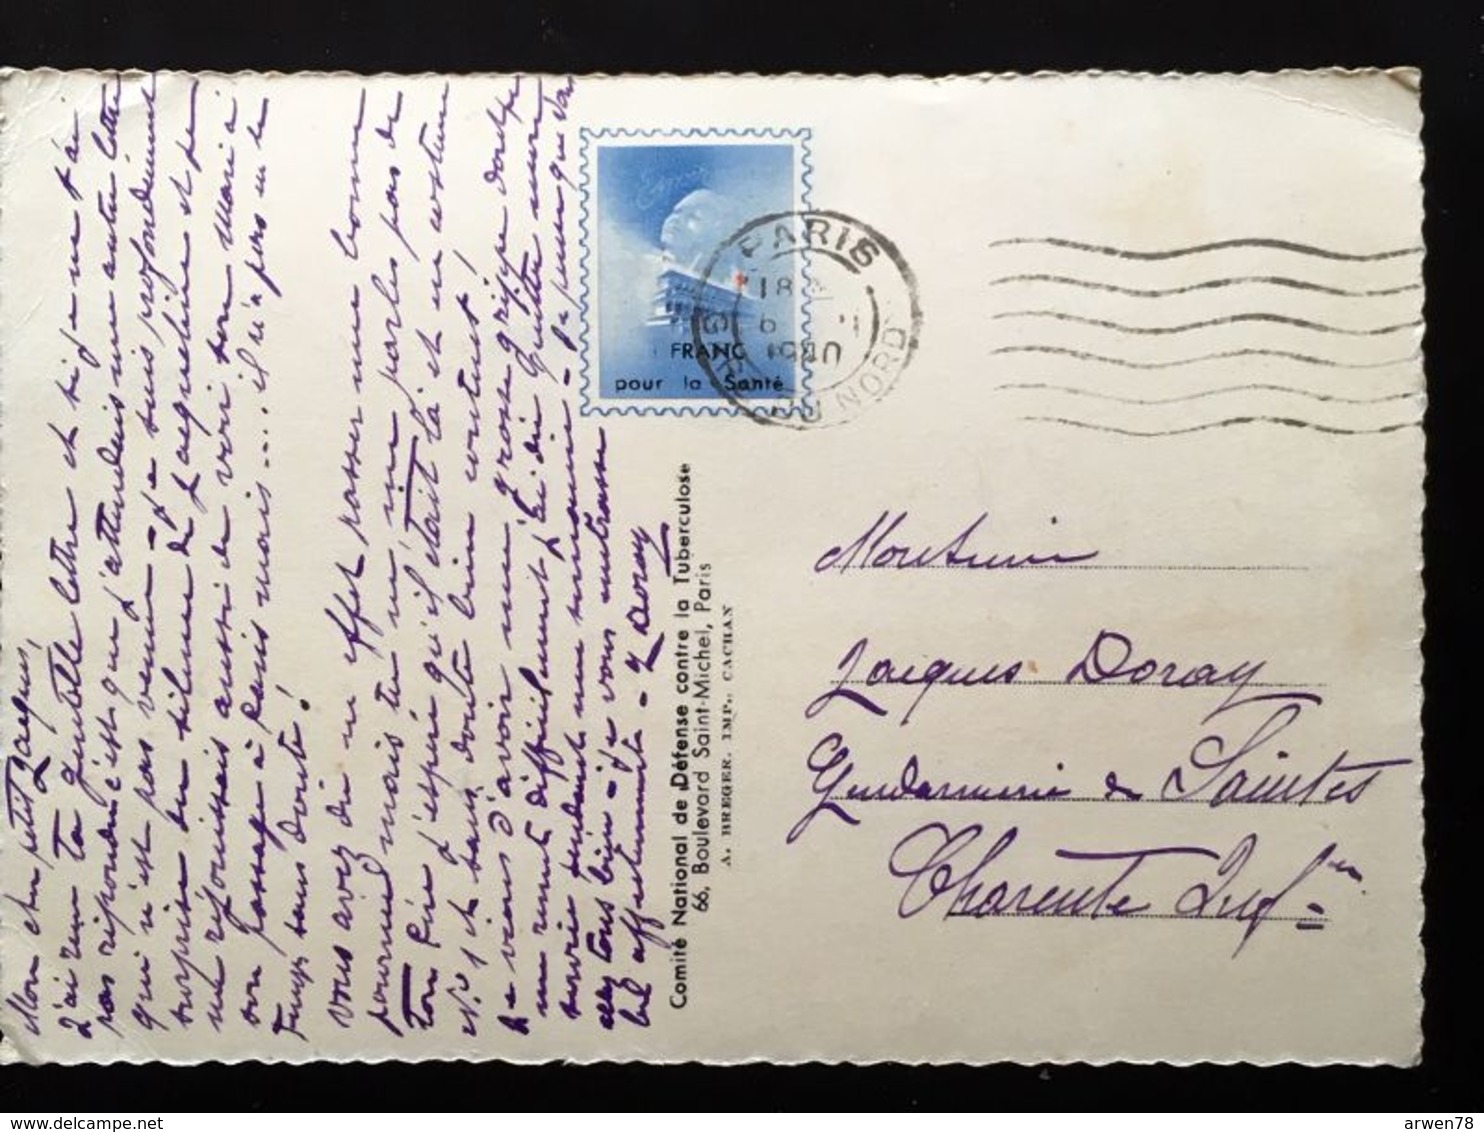 Mon cher petit Jacques,
J'ai reçu ta gentille lettre et si je ne t'ai
pas répondu c'est que j'attendais une autre lettre
qui n'est pas venue - Je suis profondément
surprise du silence de Jacqueline et je
me réjouissais aussi de voir son Mari à
son passage à Paris mais.... il n'a pas eu le
temps sans doute!
Vous avez dû en effet passer une bonne
journée mais tu ne me parles pas de
ton Père j'espère qu'il était là et en costume
N° 1 et sans doute bien content!
Je viens d'avoir une grosse grippe dont je
me remets difficilement j'ai dû garder mon
pendant une semaine - Je pense que vous
allez tous bien - je vous embrasse
bel affectueusement - J Doray
FRANC
pour la Santé
PARIS
18
6 1
1940
GARE DU NORD
Comité National de Défense contre la Tuberculose
66, Boulevard Saint-Michel, Paris
A. BREGER. IMP., CACHAN
Monsieur
Jacques Doray
Gendarmerie de Saintes
Charente Inf re
arwen78